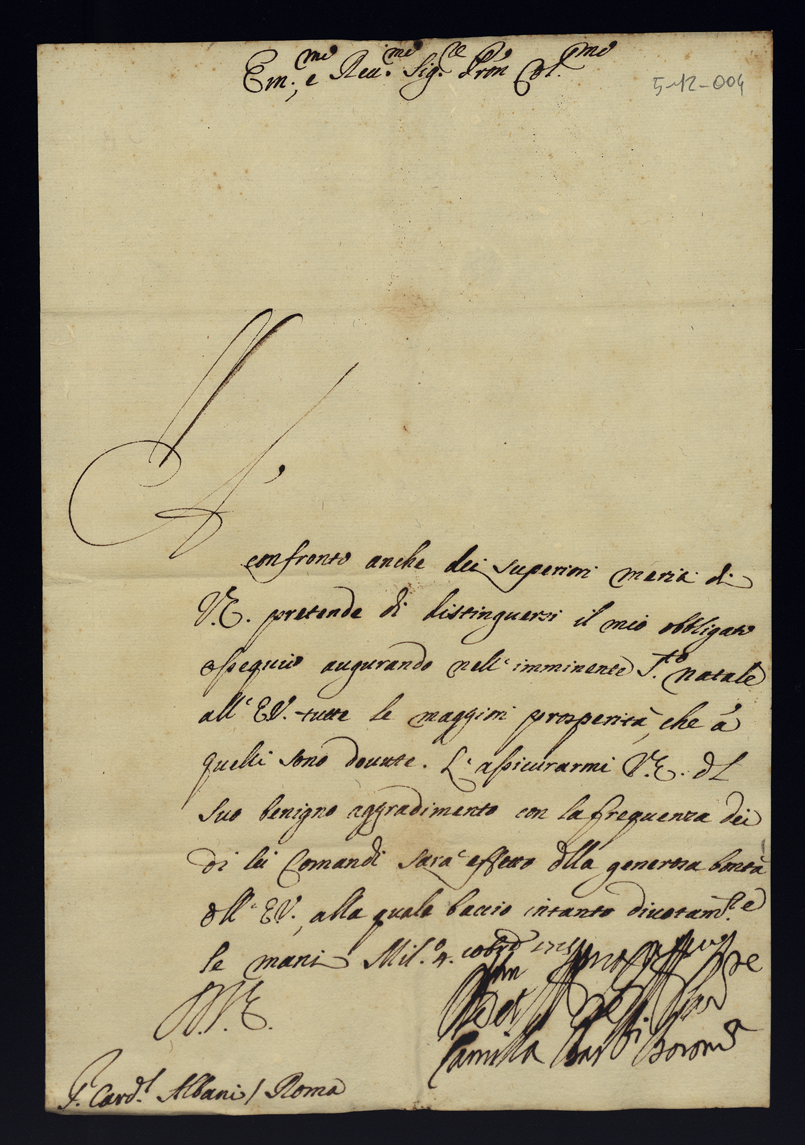 Em.mo e Reu.mo Sig.re Pron Col.mo
5-12-004
A'
confronto anche dei superiori meriti di
V.E. pretende di distinguersi il mio obbligato
ossequio augurando nell'imminente S.to natale
all'E.V. tutte le maggiori prosperità, che à
quelli sono dovute. L'assicurarmi V.E. dl
suo benigno aggradimento con la frequenza dei
di lei Comandi sara' effetto dlla generosa bontà
dll'E.V., alla quale baccio intanto divotam.te
le mani Mil.o 4.
V.E.
Camilla Bar
S. Card.l Albani / Roma